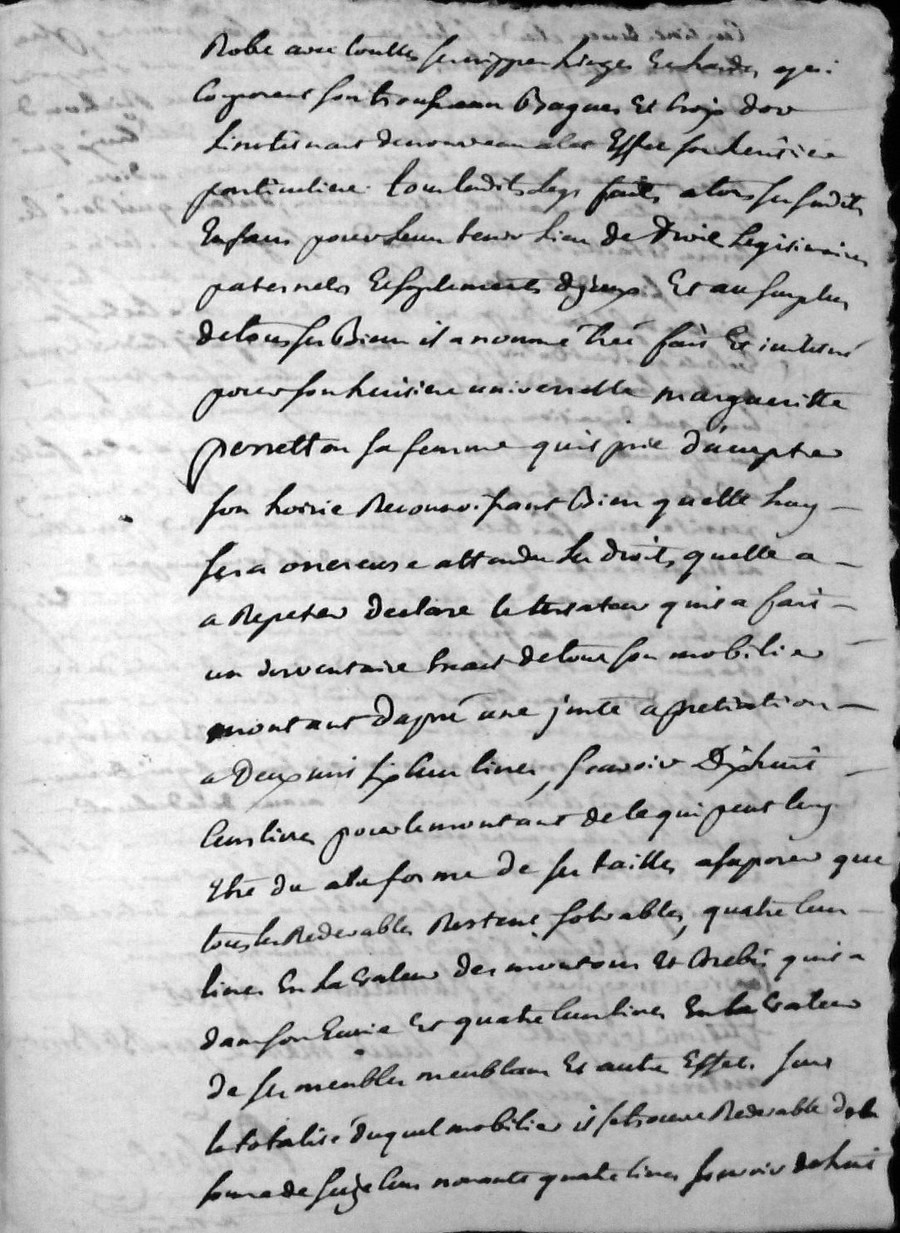 Robe avec touttes ses nippes Linges Et hardes qui
Composent son trousseau Bagues Et Croix dor
Linstituant de nouveau a cet Effet son heritiere
particuliere. tous lesdits Legs faits a tous ses susdits
Enfans pour Leur tenir Lieu de Droit Legitimaires
paternels Et suplements d'jceux. Et au surplus
de tous ses Biens il a nommé Créé fait Et institué
pour son heritiere universelle margueritte
perretton sa femme quil prie d'accepter
son hoirie Reconnoissant Bien quelle luy
sera onereuse attendu Les droits quelle a
a Repeter declare le testateur quil a fait
un inventaire Exact de tout son mobilier
montant d'apré une juste apretiation
a Deux mil six Cent livres, scavoir Dixhuit
Cent livres pour le montant de ce qui peut luy
Etre du a la forme de ses tailles a suposer que
tous les Redevables Restent solvables, quatre Cent
livres En La valeur des moutons Et Brebis quil a
dans son Ecurie Et quatre Cent livres En la valeur
de ses meubles meublans Et autre Effets sur
la totalité duquel mobilier il se trouve Redevable de la
somme de seize Cent nonante quatre livres scavoir de huit